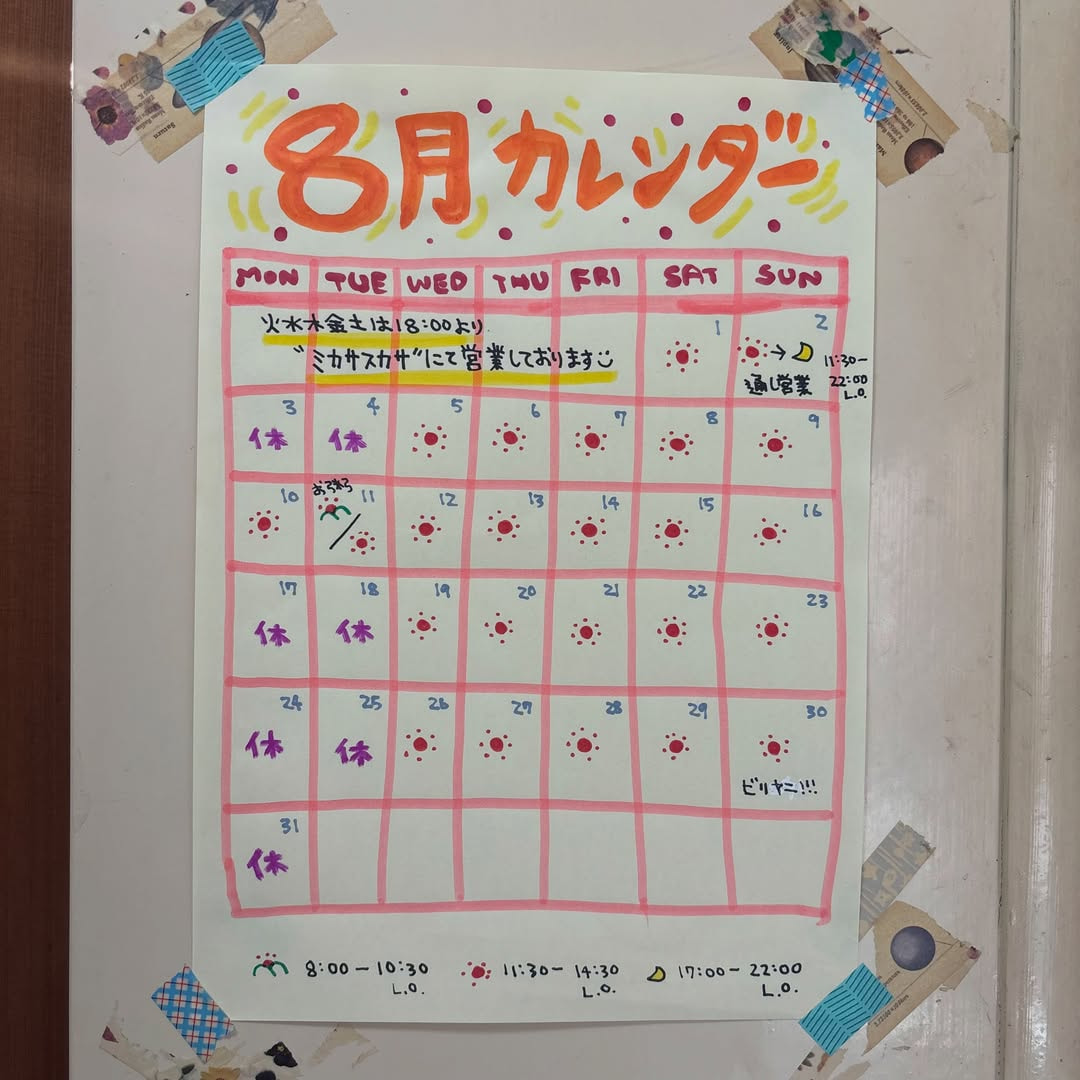 8月カレンダー
MON TUE WED THU FRI SAT SUN
火水木金土は18:00より
"ミカサスカサ"にて営業しております
1 2
11:30-
22:00
L.O.
通し営業
3 4 5 6 7 8 9
休 休
10 11 12 13 14 15 16
17 18 19 20 21 22 23
休 休
24 25 26 27 28 29 30
休 休
ビリヤニ!!!
31
休
8:00-10:30 11:30-14:30 17:00-22:00
L.O. L.O. L.O.